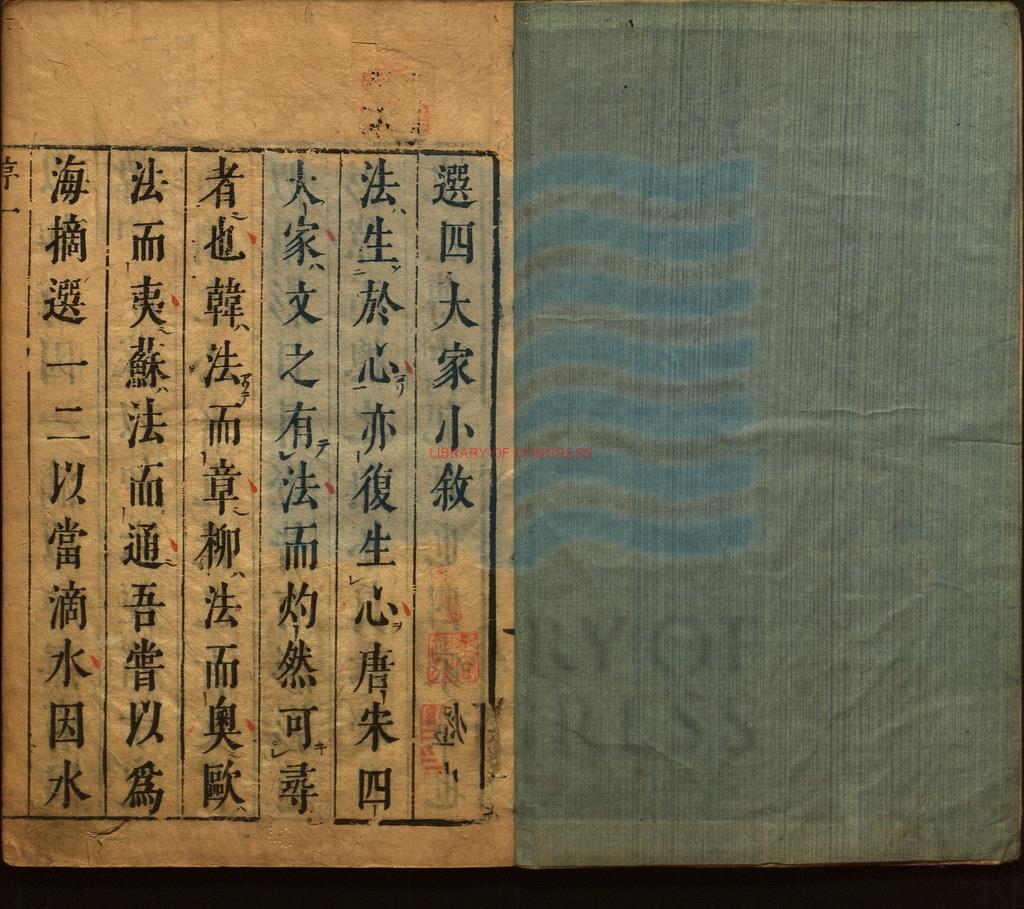 選四大家小敘
法生於心亦復生心唐宋四
大家文之有法而灼然可尋
者也韓法而章柳法而奧歐
法而夷蘇法而通吾嘗以爲
海摘選一二以當滴水因水
序一
LIBRARY OF CONGRESS